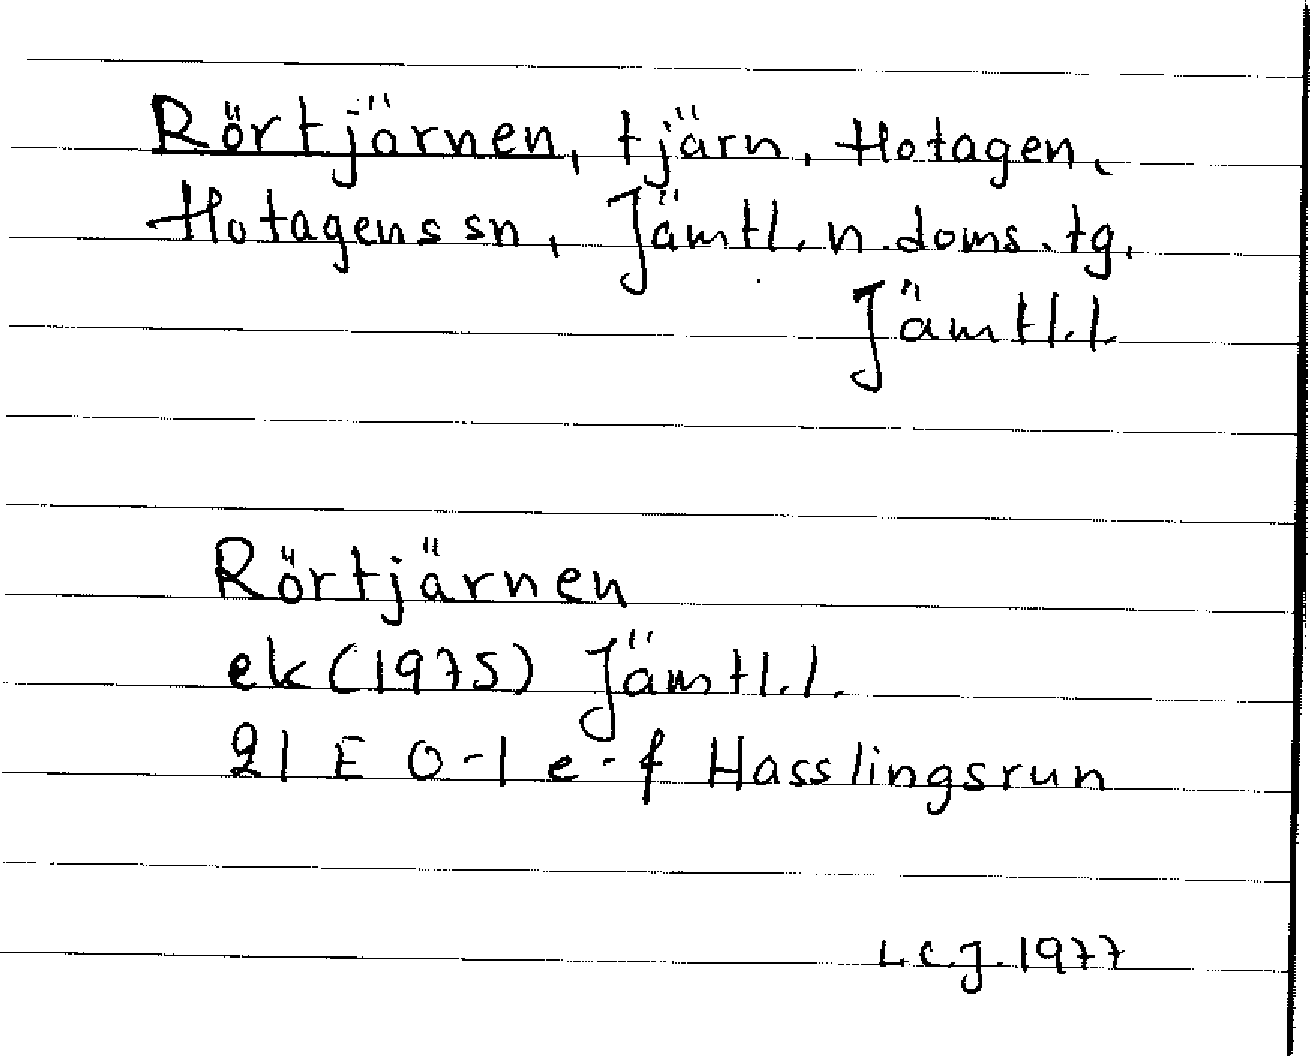 Rörtjärnen, tjärn, Hotagen,
Hotagens sn, Jämtl. n. doms. tg.
Jämtl.l.
Rörtjärnen
ek (1975) Jämtl.l.
21 E 0-1 e-f Hasslingsrun
L.C.J. 1977